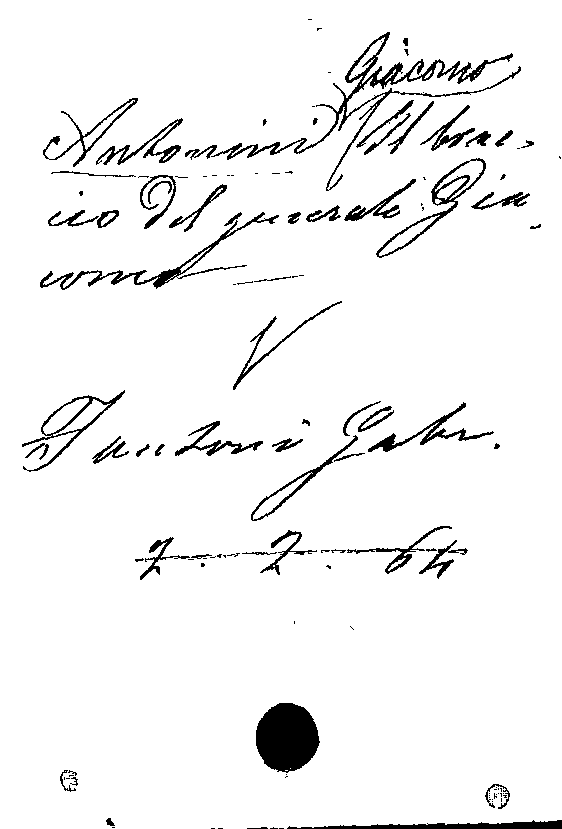 Giacomo
Antonini (Il brac-
cio del generale Gia-
como
V
Fantoni Gabr.
2. 2. 64